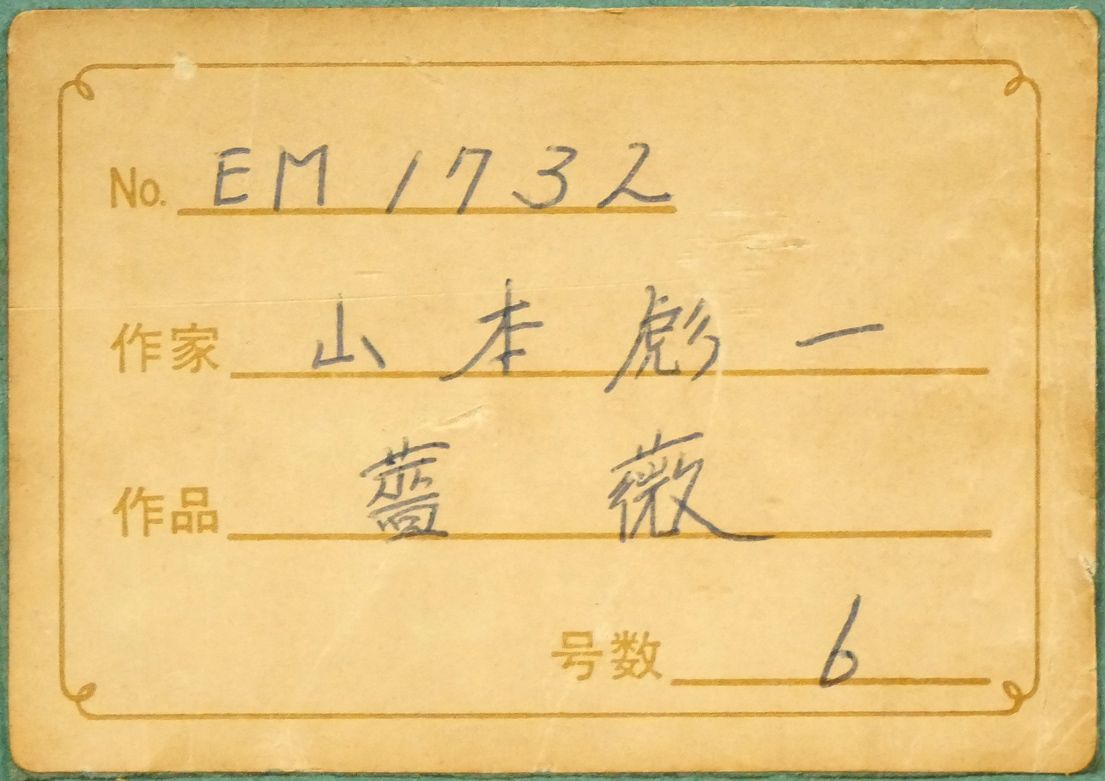 No. EM 1732
作家 山本彪一
作品 薔薇
号数 6